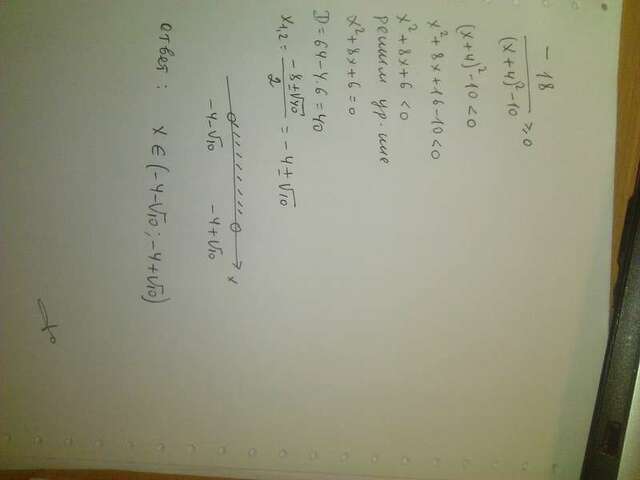 -18/((x+4)²-10) ≥ 0
(x+4)²-10<0
x²+8x+16-10<0
x²+8x+6<0
решим ур-ние
x²+8x+6=0
D=64-4·6=40
x₁,₂= (-8±√40)/2 = -4±√10
-4-√10 -4+√10 x
ответ: x∈(-4-√10;-4+√10)